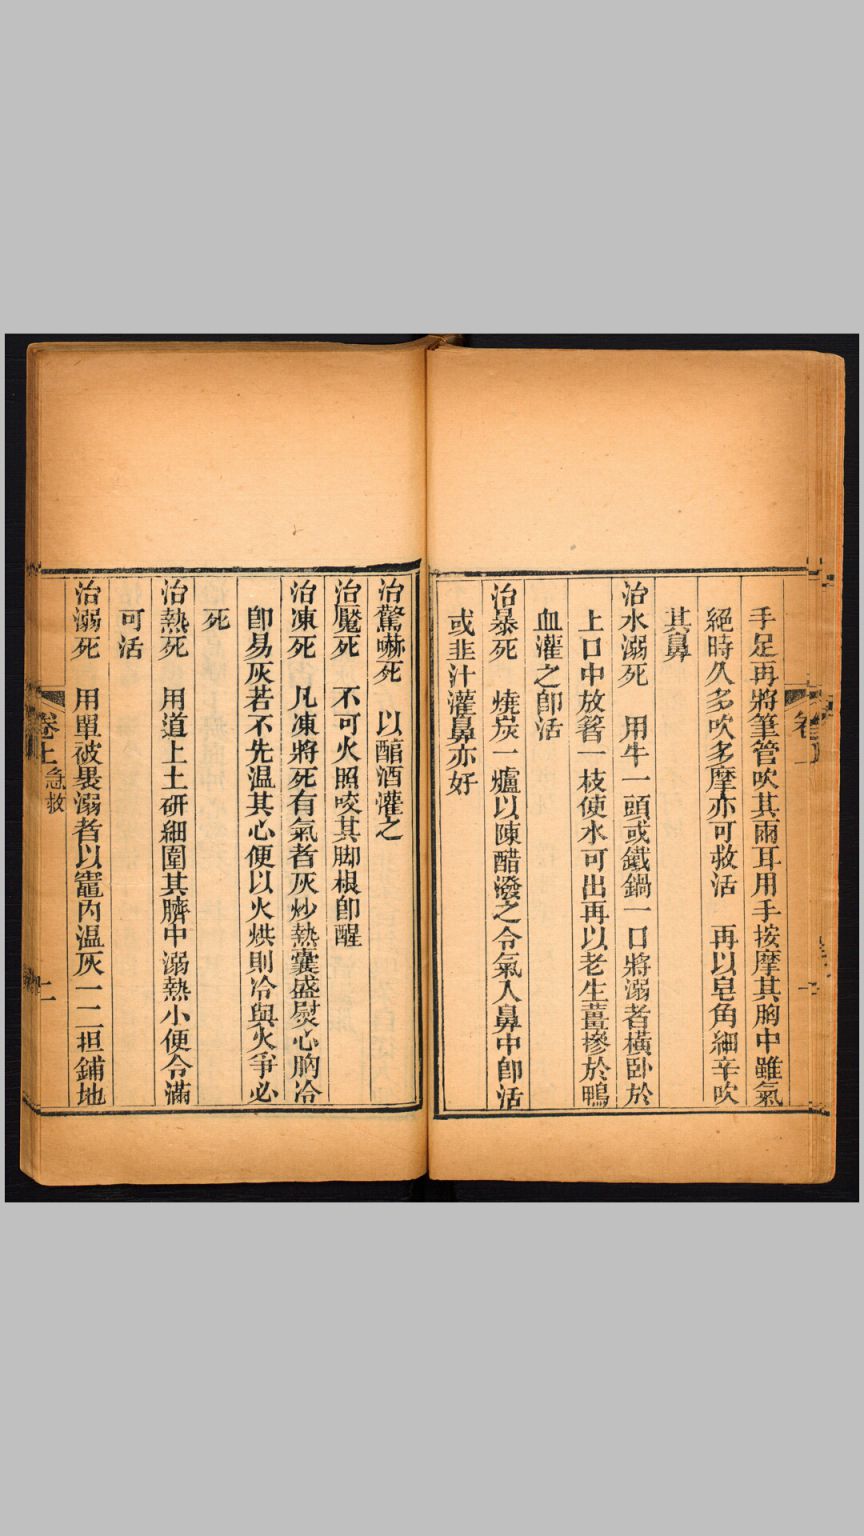 手足再將筆管吹其兩耳用手按摩其胸中雖氣
絕時久多吹多摩亦可救活　再以皂角細辛吹
其鼻
治水溺死　用牛一頭或鐵鍋一口將溺者橫卧於
上口中放箸一枝使水可出再以老生薑摻於鴨
血灌之卽活
治暴死　燒炭一爐以陳醋潑之令氣入鼻中卽活
或韭汁灌鼻亦好
治驚嚇死　以醅酒灌之
治魘死　不可火照咬其脚根卽醒
治凍死　凡凍將死有氣者灰炒熱囊盛熨心胸冷
卽易灰若不先温其心便以火烘則冷與火爭必
死
治熱死　用道上土研細圍其臍中溺熱小便令滿
可活
治溺死　用單被裹溺者以竈內温灰一二担鋪地
卷上　急救